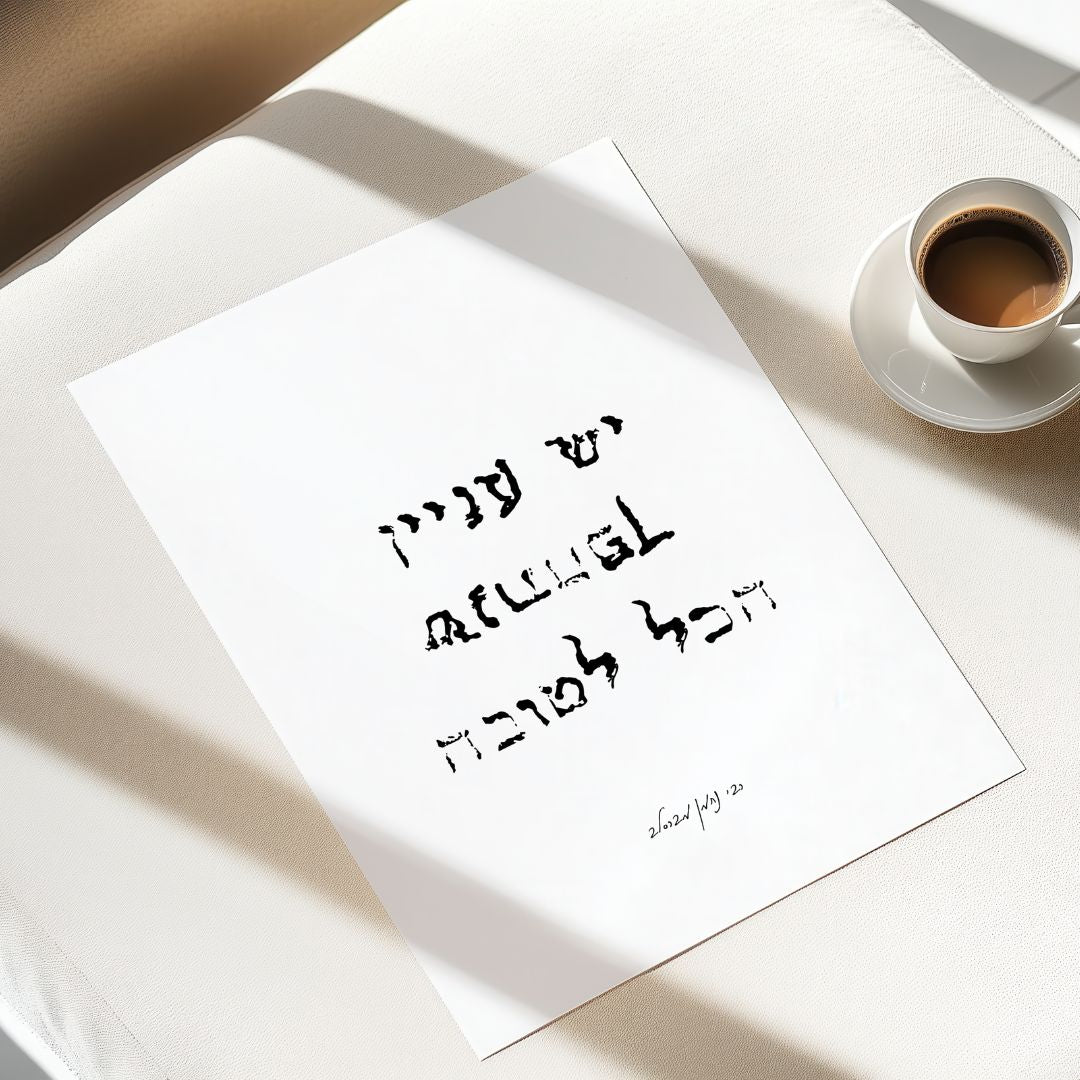 יש עניין
שיתהפך
הכל לטובה
רבי נחמן מברסלב